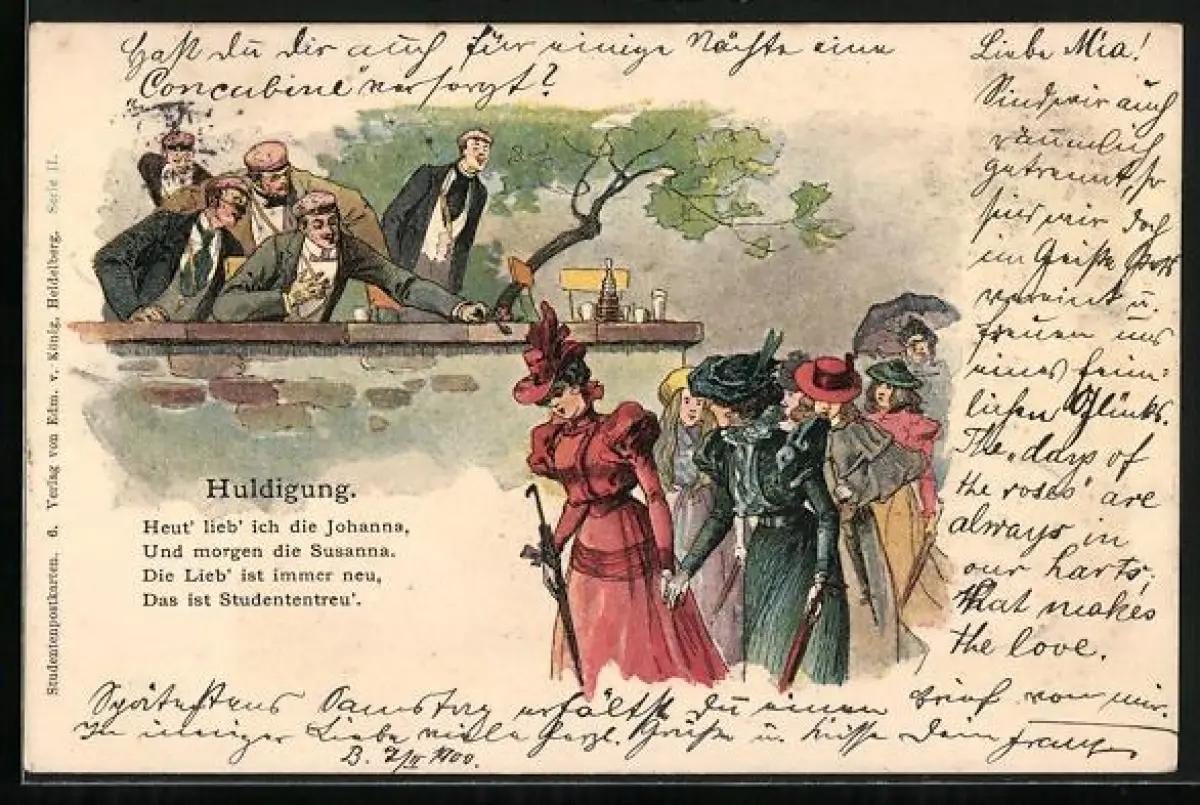 Hast du dir auch für einige Nächte eine
"Concubine" versorgt?
Liebe Mia!
Sind wir auch
räumlich
getrennt, so
sind wir doch
im Geiste
vereint u.
freuen uns
eines heim-
lichen Glücks.
The "days of
the roses" are
always in
our harts;
that makes
the love.
Studentenpostkarten. 6. Verlag von Edm. v. König, Heidelberg. Serie II.
Huldigung.
Heut' lieb' ich die Johanna,
Und morgen die Susanna.
Die Lieb' ist immer neu,
Das ist Studententreu'.
Spätestens Samstag erhältst du einen Brief von mir.
In inniger Liebe viele herzl. Grüße u. Küsse Dein
B. 7/II 1900.